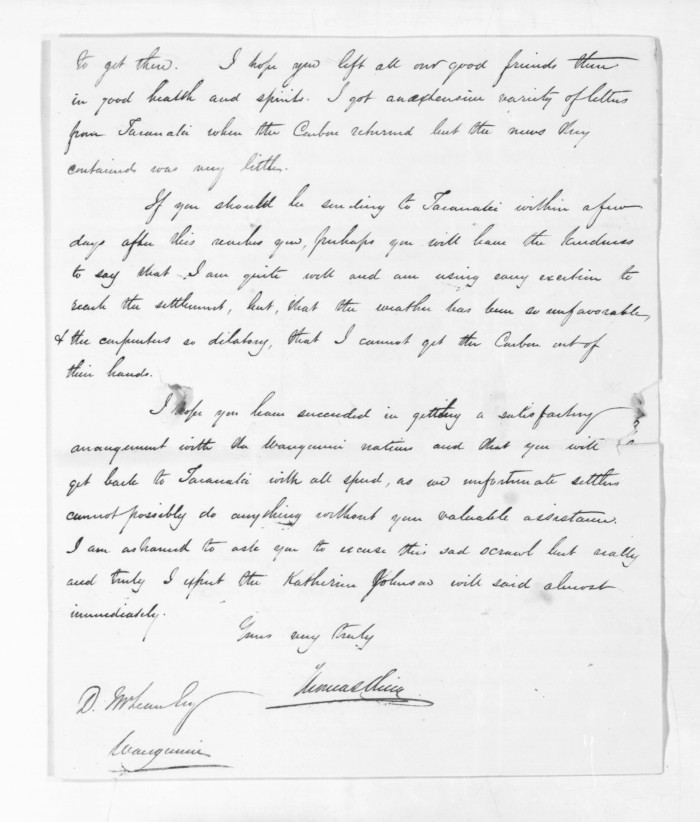 to get there. I hope you left all our good friends there
in good health and spirits. I got an extensive variety of letters
from Taranaki when the Carbon returned but the news they
contained was very little.
If you should be sending to Taranaki within a few
days after this reaches you, perhaps you will have the kindness
to say that I am quite well and am using every exertion to
reach the settlement, but, that the weather has been so unfavorable,
& the carpenters so dilatory, that I cannot get the Carbon out of
their hands.
I hope you have succeeded in getting a satisfactory
arrangement with the Wanganui natives and that you will
get back to Taranaki with all speed, as we unfortunate settlers
cannot possibly do anything without your valuable assistance.
I am ashamed to ask you to excuse this sad scrawl but really
and truly I expect the Katherine Johnson will said almost
immediately.
Yours very truly
Thomas
D. McLean Esq
Wanganui